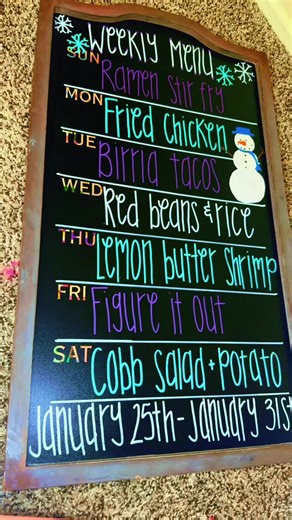 Weekly Menu
SUN
Ramen stir fry
MON
Fried chicken
TUE
Birria tacos
WED
Red beans & rice
THU
Lemon butter shrimp
FRI
Figure it out
SAT
Cobb salad + potato
January 25th - January 31st